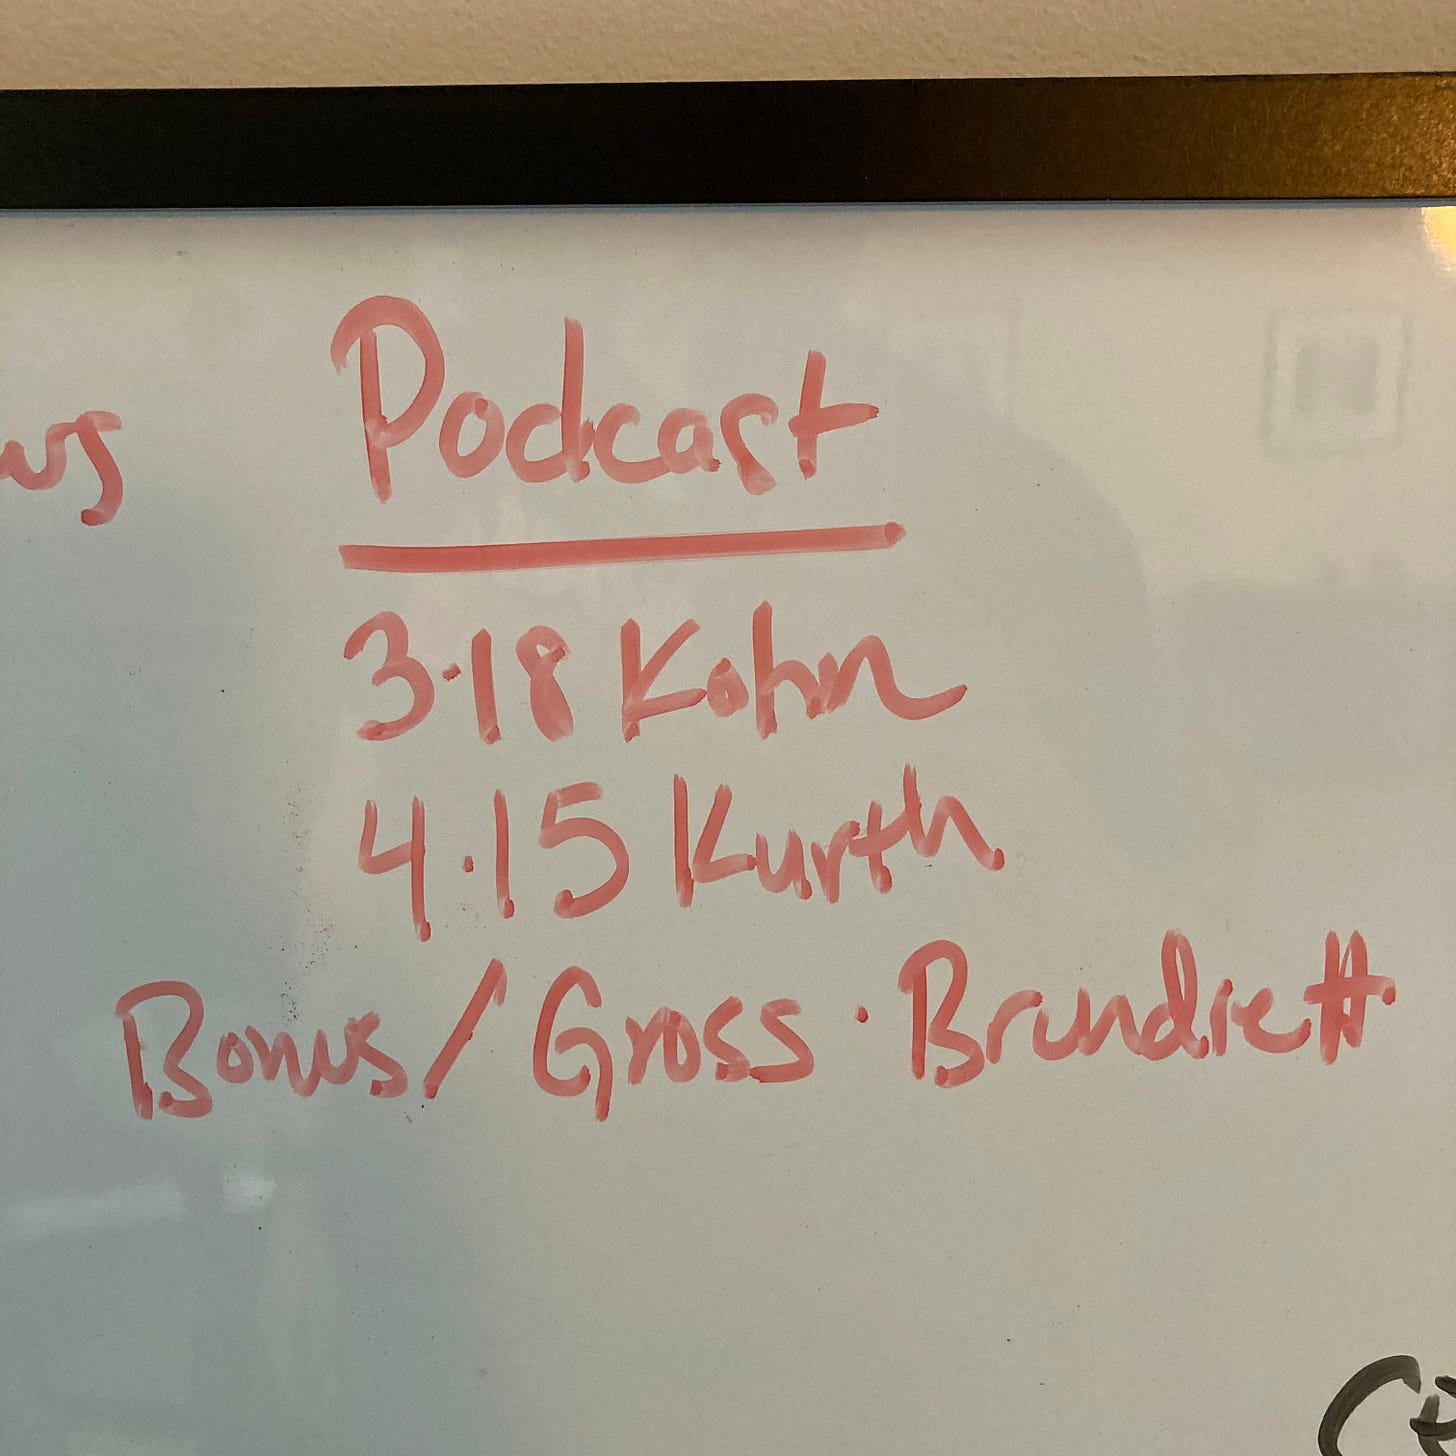 Podcast
3·18 Kohn
4·15 Kurth
Bonus/Gross · Brundrett